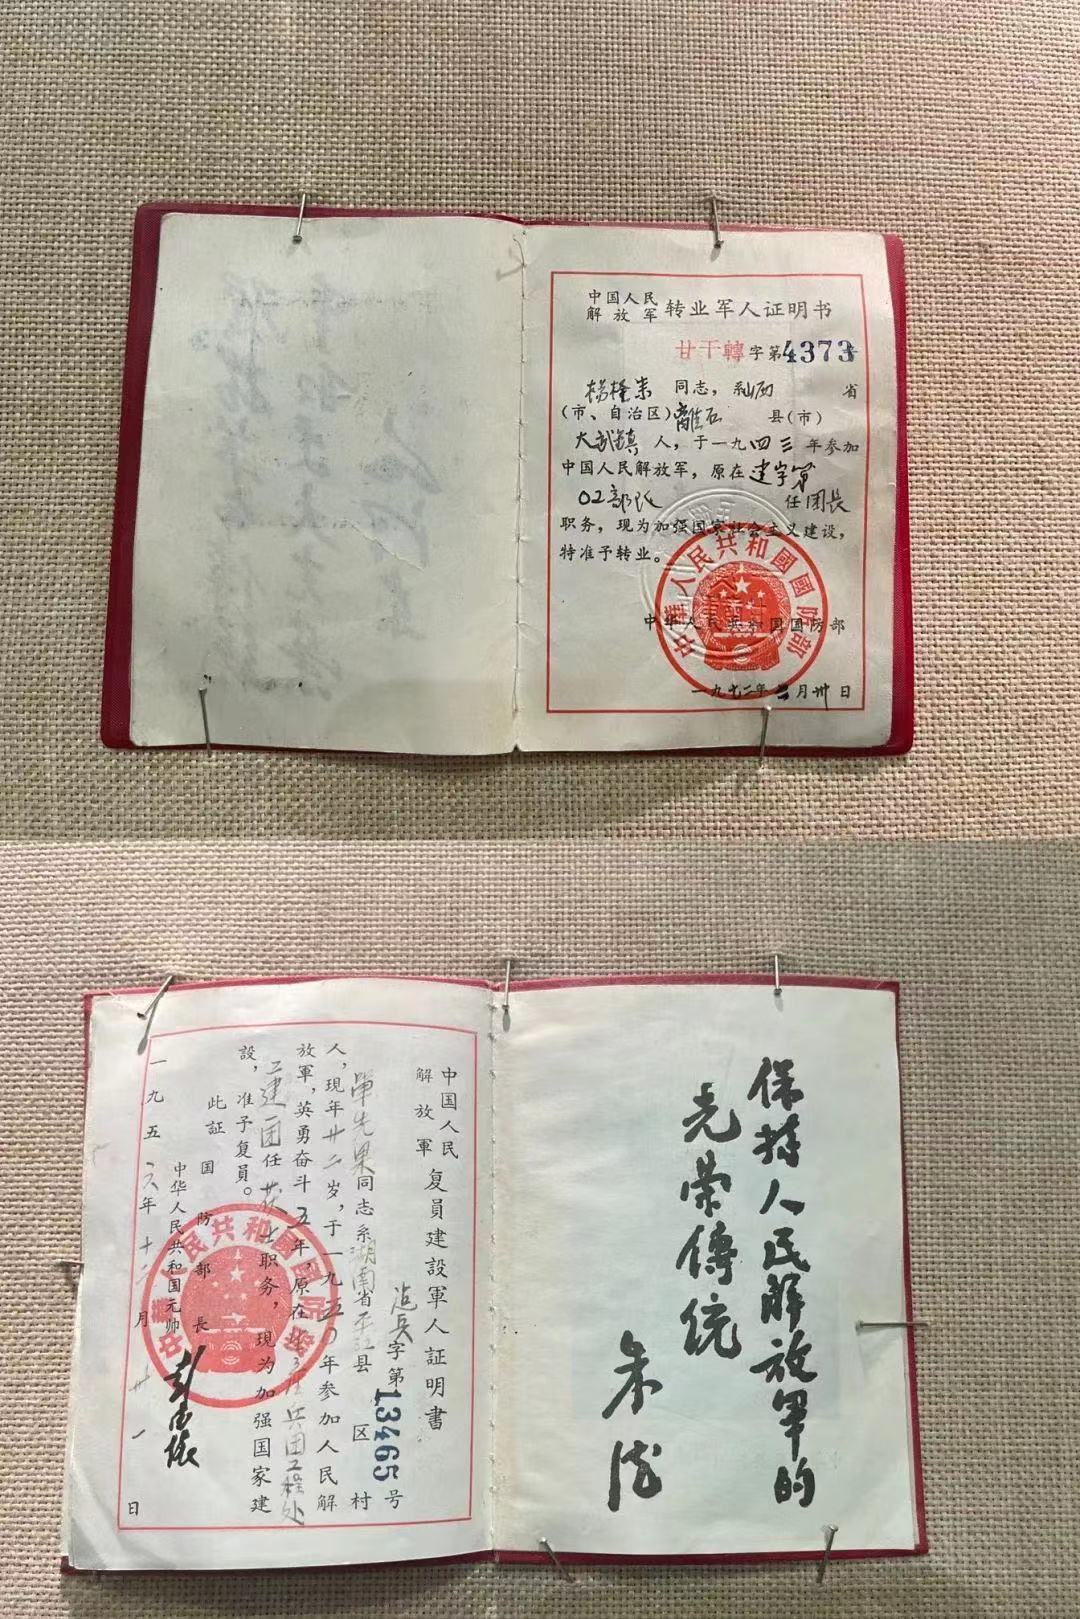 中国人民
解放军 转业军人证明书
廿干轉 字第4373号
同志，系山西 省
（市、自治区）离石 县（市）
大武镇 人，于一九四三年参加
中国人民解放军，原在建字第
02部队 任团长
职务，现为加强国家社会主义建设，
特准予转业。
中华人民共和国国防部
一九七二年 月卅日
中華人民共和國國防部
中国人民
解放軍 复員建設軍人証明書
字第13465号
单先果同志系湖南省平江县 区 村
人，現年廿二岁，于一九五〇年参加人民解
放軍，英勇奋斗五年，原在 兵团工程处
建一团任 职务，現为加强国家建
設，准予复員。
此証
国防部長
中华人民共和国元帅 彭德怀
一九五六年十二月卅一日
中華人民共和國國防部
保持人民解放军的
光荣傳統
朱德